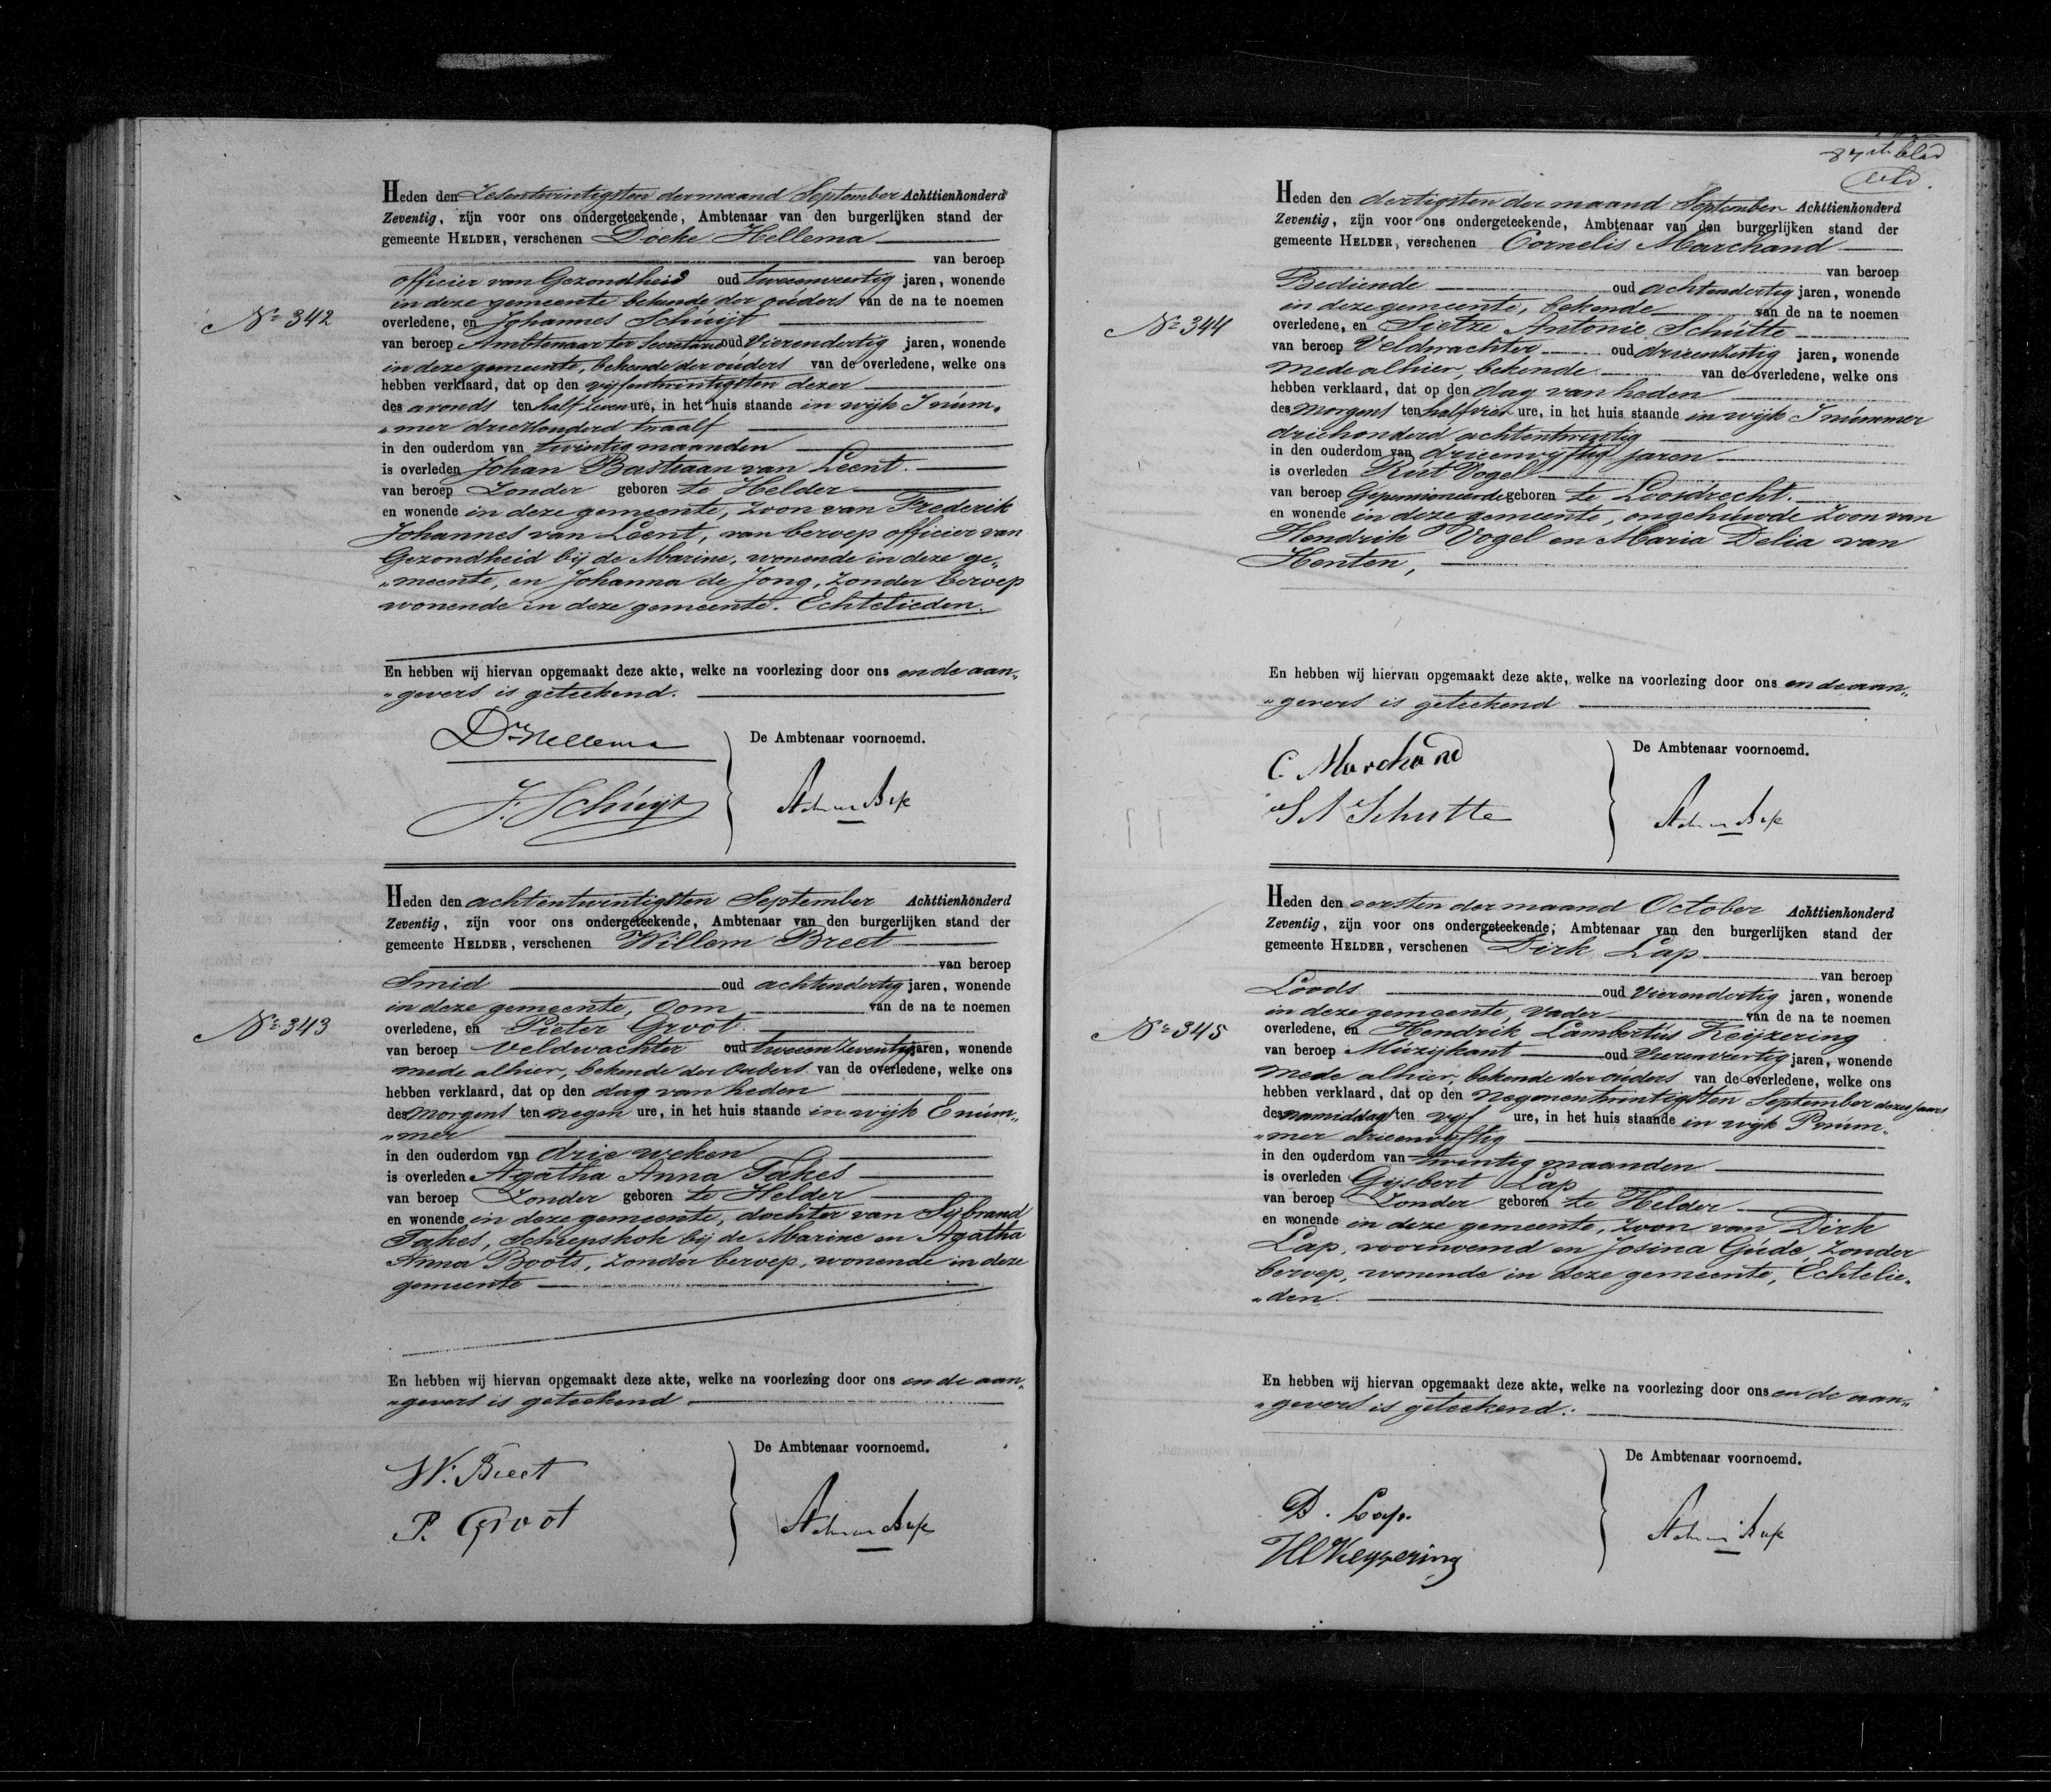 Nº 342
Heden den Zesentwintigsten der maand September Achttienhonderd
Zeventig, zijn voor ons ondergeteekende, Ambtenaar van den burgerlijken stand der
gemeente HELDER, verschenen Doeke Hellema
van beroep
officier van Gezondheid oud tweeenveertig jaren, wonende
in deze gemeente bekende der ouders van de na te noemen
overledene, en Johannes Schuijt
van beroep Ambtenaar ter Secretarie oud Vierendertig jaren, wonende
in deze gemeente, bekende der ouders van de overledene, welke ons
hebben verklaard, dat op den vijfentwintigsten dezer
des avonds ten half zeven ure, in het huis staande in wijk I num„
„mer driehonderd twaalf
in den ouderdom van twintig maanden
is overleden Johan Bastiaan van Leent.
van beroep Zonder geboren te Helder
en wonende in deze gemeente, zoon van Frederik
Johannes van Leent, van beroep officier van
Gezondheid bij de Marine, wonende in deze ge„
„meente, en Johanna de Jong, zonder beroep
wonende in deze gemeente. Echtelieden.
En hebben wij hiervan opgemaakt deze akte, welke na voorlezing door ons en de aan„
„gevers is geteekend.
Dr Hellema
J. Schuijt
De Ambtenaar voornoemd.
Nº 343
Heden den achtentwintigsten September Achttienhonderd
Zeventig, zijn voor ons ondergeteekende, Ambtenaar van den burgerlijken stand der
gemeente HELDER, verschenen Willem Breet
van beroep
Smid oud achtendertig jaren, wonende
in deze gemeente, oom van de na te noemen
overledene, en Pieter Groot
van beroep veldwachter oud tweeenzeventig jaren, wonende
mede alhier, bekende der ouders van de overledene, welke ons
hebben verklaard, dat op den dag van heden
des morgens ten negen ure, in het huis staande in wijk E num„
„mer
in den ouderdom van drie weken
is overleden Agatha Anna Takes
van beroep Zonder geboren te Helder
en wonende in deze gemeente, dochter van Sijbrand
Takes, Scheepskok bij de Marine en Agatha
Anna Boots, zonder beroep, wonende in deze
gemeente
En hebben wij hiervan opgemaakt deze akte, welke na voorlezing door ons en de aan„
„gevers is geteekend
W. Breet
P. Groot
De Ambtenaar voornoemd.
87ste blad
Nº 344
Heden den dertigsten der maand September Achttienhonderd
Zeventig, zijn voor ons ondergeteekende, Ambtenaar van den burgerlijken stand der
gemeente HELDER, verschenen Cornelis Marchand
van beroep
Bediende oud achtendertig jaren, wonende
in deze gemeente, bekende van de na te noemen
overledene, en Sietze Antonie Schutte
van beroep Veldwachter oud jaren, wonende
mede alhier, bekende van de overledene, welke ons
hebben verklaard, dat op den dag van heden
des morgens ten half vier ure, in het huis staande in wijk I nummer
driehonderd achtentwintig
in den ouderdom van drieenvijftig jaren
is overleden Rut Vogel
van beroep Gepensioneerde geboren te Loosdrecht.
en wonende in deze gemeente, ongehuwde zoon van
Hendrik Vogel en Maria Delia van
Henten,
En hebben wij hiervan opgemaakt deze akte, welke na voorlezing door ons en de aan„
„gevers is geteekend
C. Marchand
S A Schutte
De Ambtenaar voornoemd.
Nº 345
Heden den eersten der maand October Achttienhonderd
Zeventig, zijn voor ons ondergeteekende, Ambtenaar van den burgerlijken stand der
gemeente HELDER, verschenen Dirk Lap
van beroep
Loods oud Vierendertig jaren, wonende
in deze gemeente, vader van de na te noemen
overledene, en Hendrik Lambertus Keijzering
van beroep Muzijkant oud Vierenveertig jaren, wonende
mede alhier, bekende der ouders van de overledene, welke ons
hebben verklaard, dat op den Negenentwintigsten September dezes jaars
des namiddags ten vijf ure, in het huis staande in wijk P num„
„mer drieenvijftig
in den ouderdom van twintig maanden
is overleden Gijsbert Lap
van beroep Zonder geboren te Helder
en wonende in deze gemeente, zoon van Dirk
Lap, voornoemd en Josina Gude, zonder
beroep, wonende in deze gemeente, Echtelie„
„den.
En hebben wij hiervan opgemaakt deze akte, welke na voorlezing door ons en de aan„
„gevers is geteekend.
D. Lap.
HL Keyzering
De Ambtenaar voornoemd.